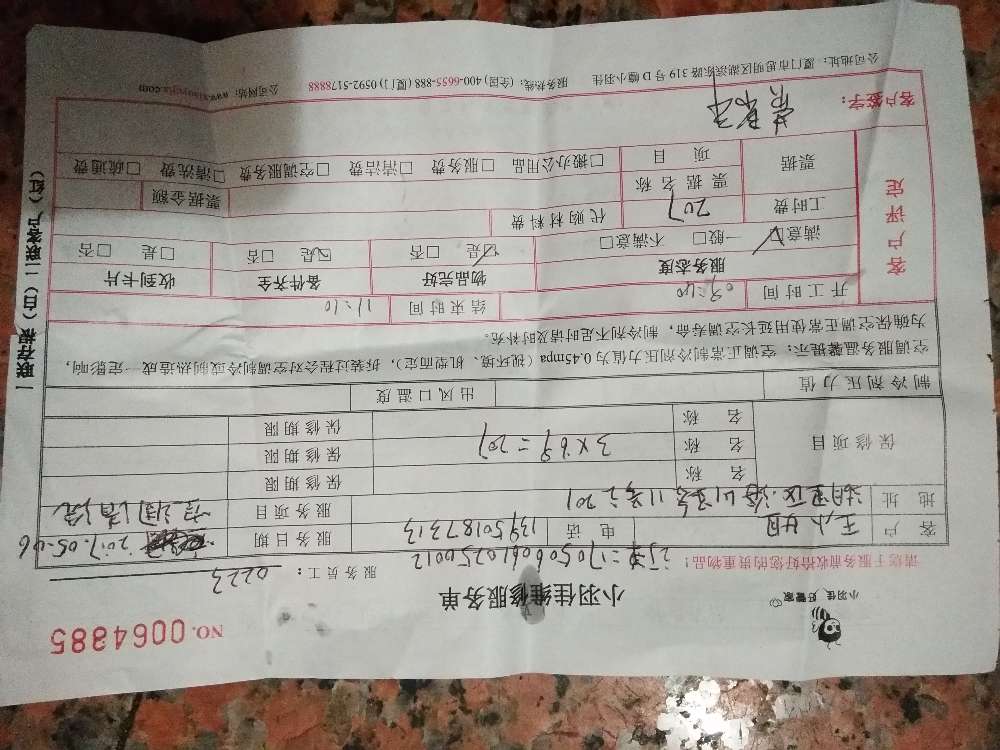 小羽佳 好管家
NO. 0064885
小羽佳维修服务单
服务员工： 0223
请您于服务前收拾好您的贵重物品！
订单=705060610250012
客户 王小姐 电话 13950187313 服务日期 2017.05.06
地址 服务项目 空调清洗
保修项目
名称 保修期限
名称 3×69=207 保修期限
名称 保修期限
制冷剂压力值 出风口温度
空调服务温馨提示：空调正常制冷剂压力值为0.45mpa（视环境、机型而定），拆装过程会对空调制冷或制热造成一定影响，
为确保空调正常使用延长空调寿命，制冷剂不足时请及时补充。
开工时间 09:40 结束时间 11:10
客户评定
服务态度 物品完好 备件齐全 收到卡片
满意☑ 一般□ 不满意□ ☑是 □否 ☑是 □否 □是 □否
工时费 207 代购材料费
票据 票据名称 票据金额
项目 □搬办公用品 □服务费 □清洁费 □空调服务费 □清洗费 □疏通费
客户签字：
公司地址：厦门市思明区湖滨东路319号D幢小羽佳 服务热线：(全国) 400-6655-888 (厦门) 0592-5178888 公司网站：
一联存根（白）二联客户（红）